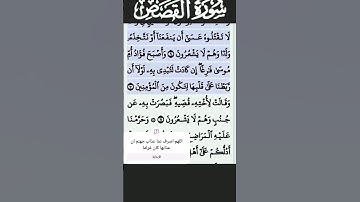 سُورَةُ القَصَصِ
لَا تَقْتُلُوهُ عَسَىٰ أَن يَنفَعَنَا أَوْ نَتَّخِذَهُۥ
وَلَدًا وَهُمْ لَا يَشْعُرُونَ ۝ وَأَصْبَحَ فُؤَادُ أُمِّ
مُوسَىٰ فَٰرِغًا إِن كَادَتْ لَتُبْدِى بِهِۦ لَوْلَآ أَن
رَّبَطْنَا عَلَىٰ قَلْبِهَا لِتَكُونَ مِنَ ٱلْمُؤْمِنِينَ
وَقَالَتْ لِأُخْتِهِۦ قُصِّيهِ فَبَصُرَتْ بِهِۦ عَن
جُنُبٍ وَهُمْ لَا يَشْعُرُونَ ۝ وَحَرَّمْنَا
عَلَيْهِ ٱلْمَرَاضِ
اللهم اصرف عنا عذاب جهنم ان
عذابها كان غراما
أَدُلُّكُمْ عَلَىٰٓ أَهْ